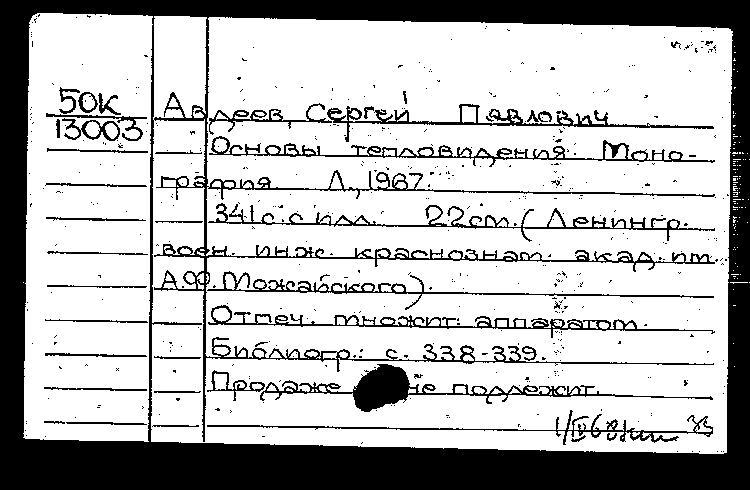 50К
13003
Авдеев, Сергей Павлович
Основы тепловидения. Моно-
графия Л., 1967.
341 с. с илл. 22 см. (Ленингр.
воен. инж. краснознам. акад. им.
А.Ф. Можайского).
Отпеч. множит. аппаратом.
Библиогр.: с. 338-339.
Продаже не подлежит.